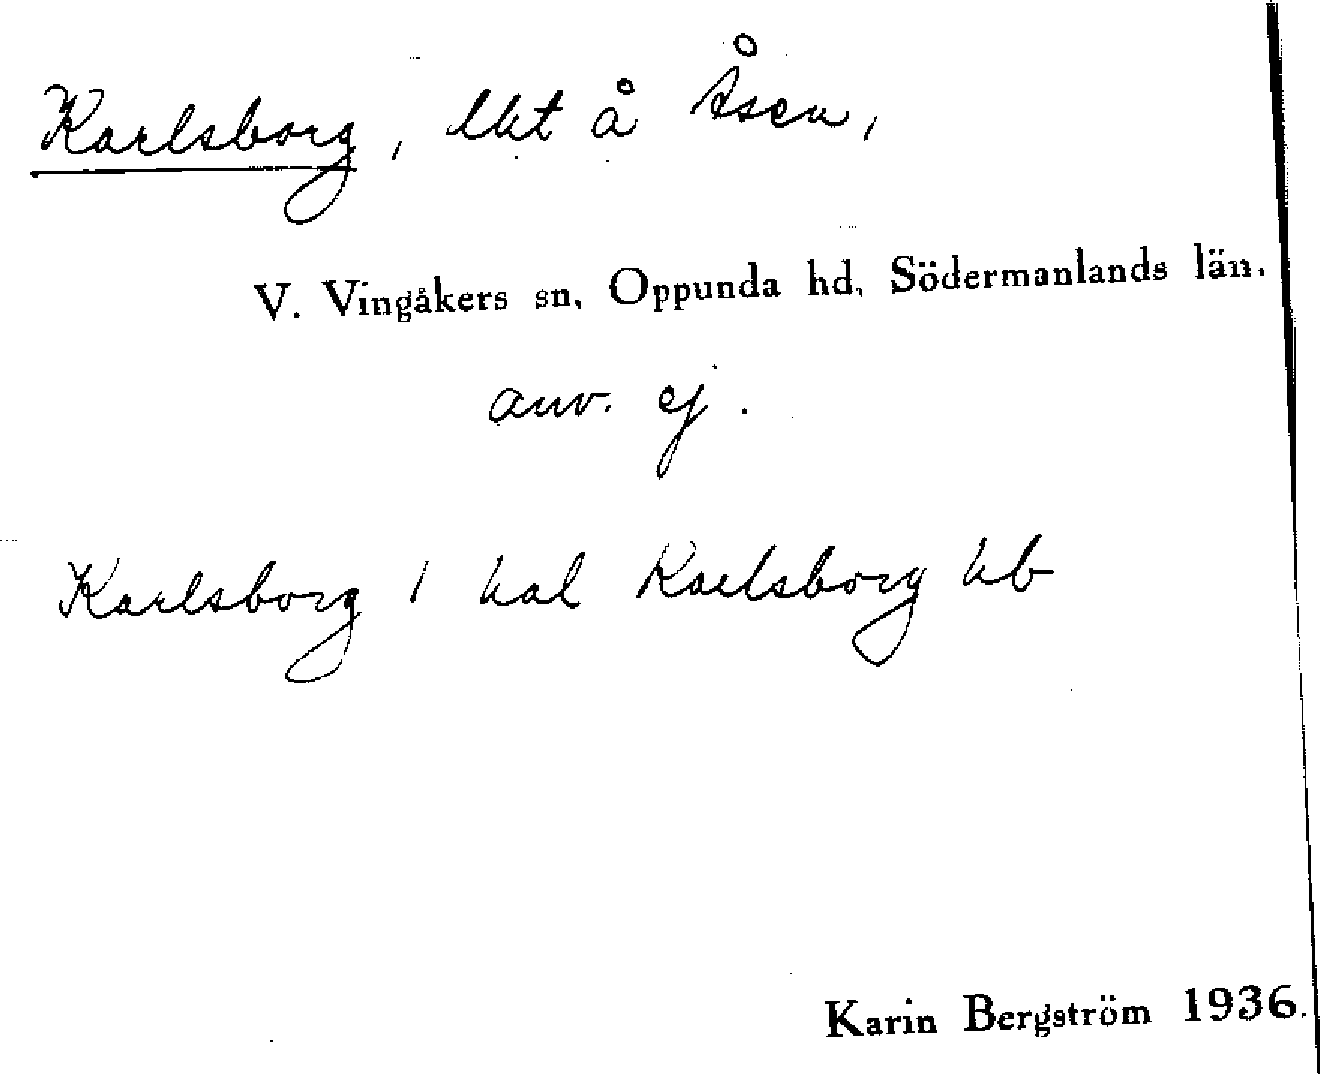 Karlsborg, lht å Åsen,
V. Vingåkers sn, Oppunda hd, Södermanlands län.
anv. ej.
Karlsborg / hal Karlsborg hb
Karin Bergström 1936.